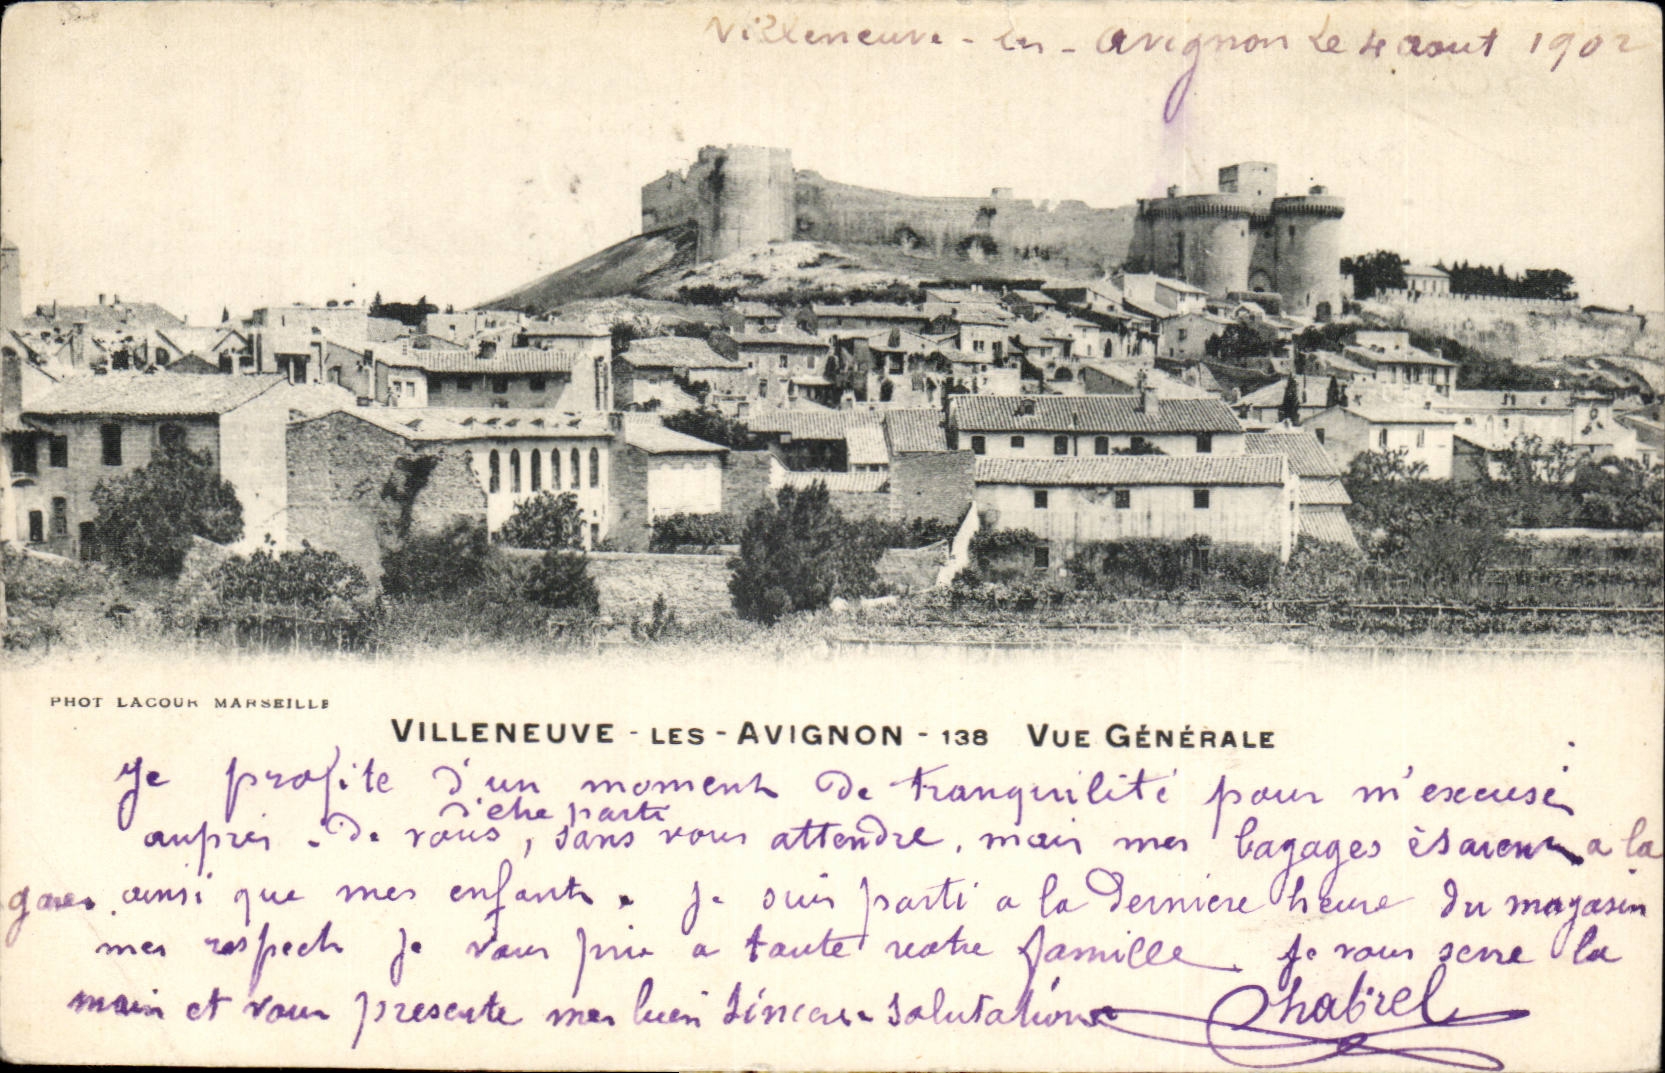 Villeneuve - les - Avignon Le 4 aout 1902
PHOT LACOUR MARSEILLE
VILLENEUVE - LES - AVIGNON - 138 VUE GÉNÉRALE
Je profite d'un moment de tranquilité pour m'excuser
d'etre parti
aupres de vous, sans vous attendre, mais mes bagages ètaient a la
gare ainsi que mes enfants. Je suis parti a la derniere heure du magasin
mes respects je vous prie a toute votre famille. Je vous serre la
main et vous presente mes bien sinceres salutations Chabrel